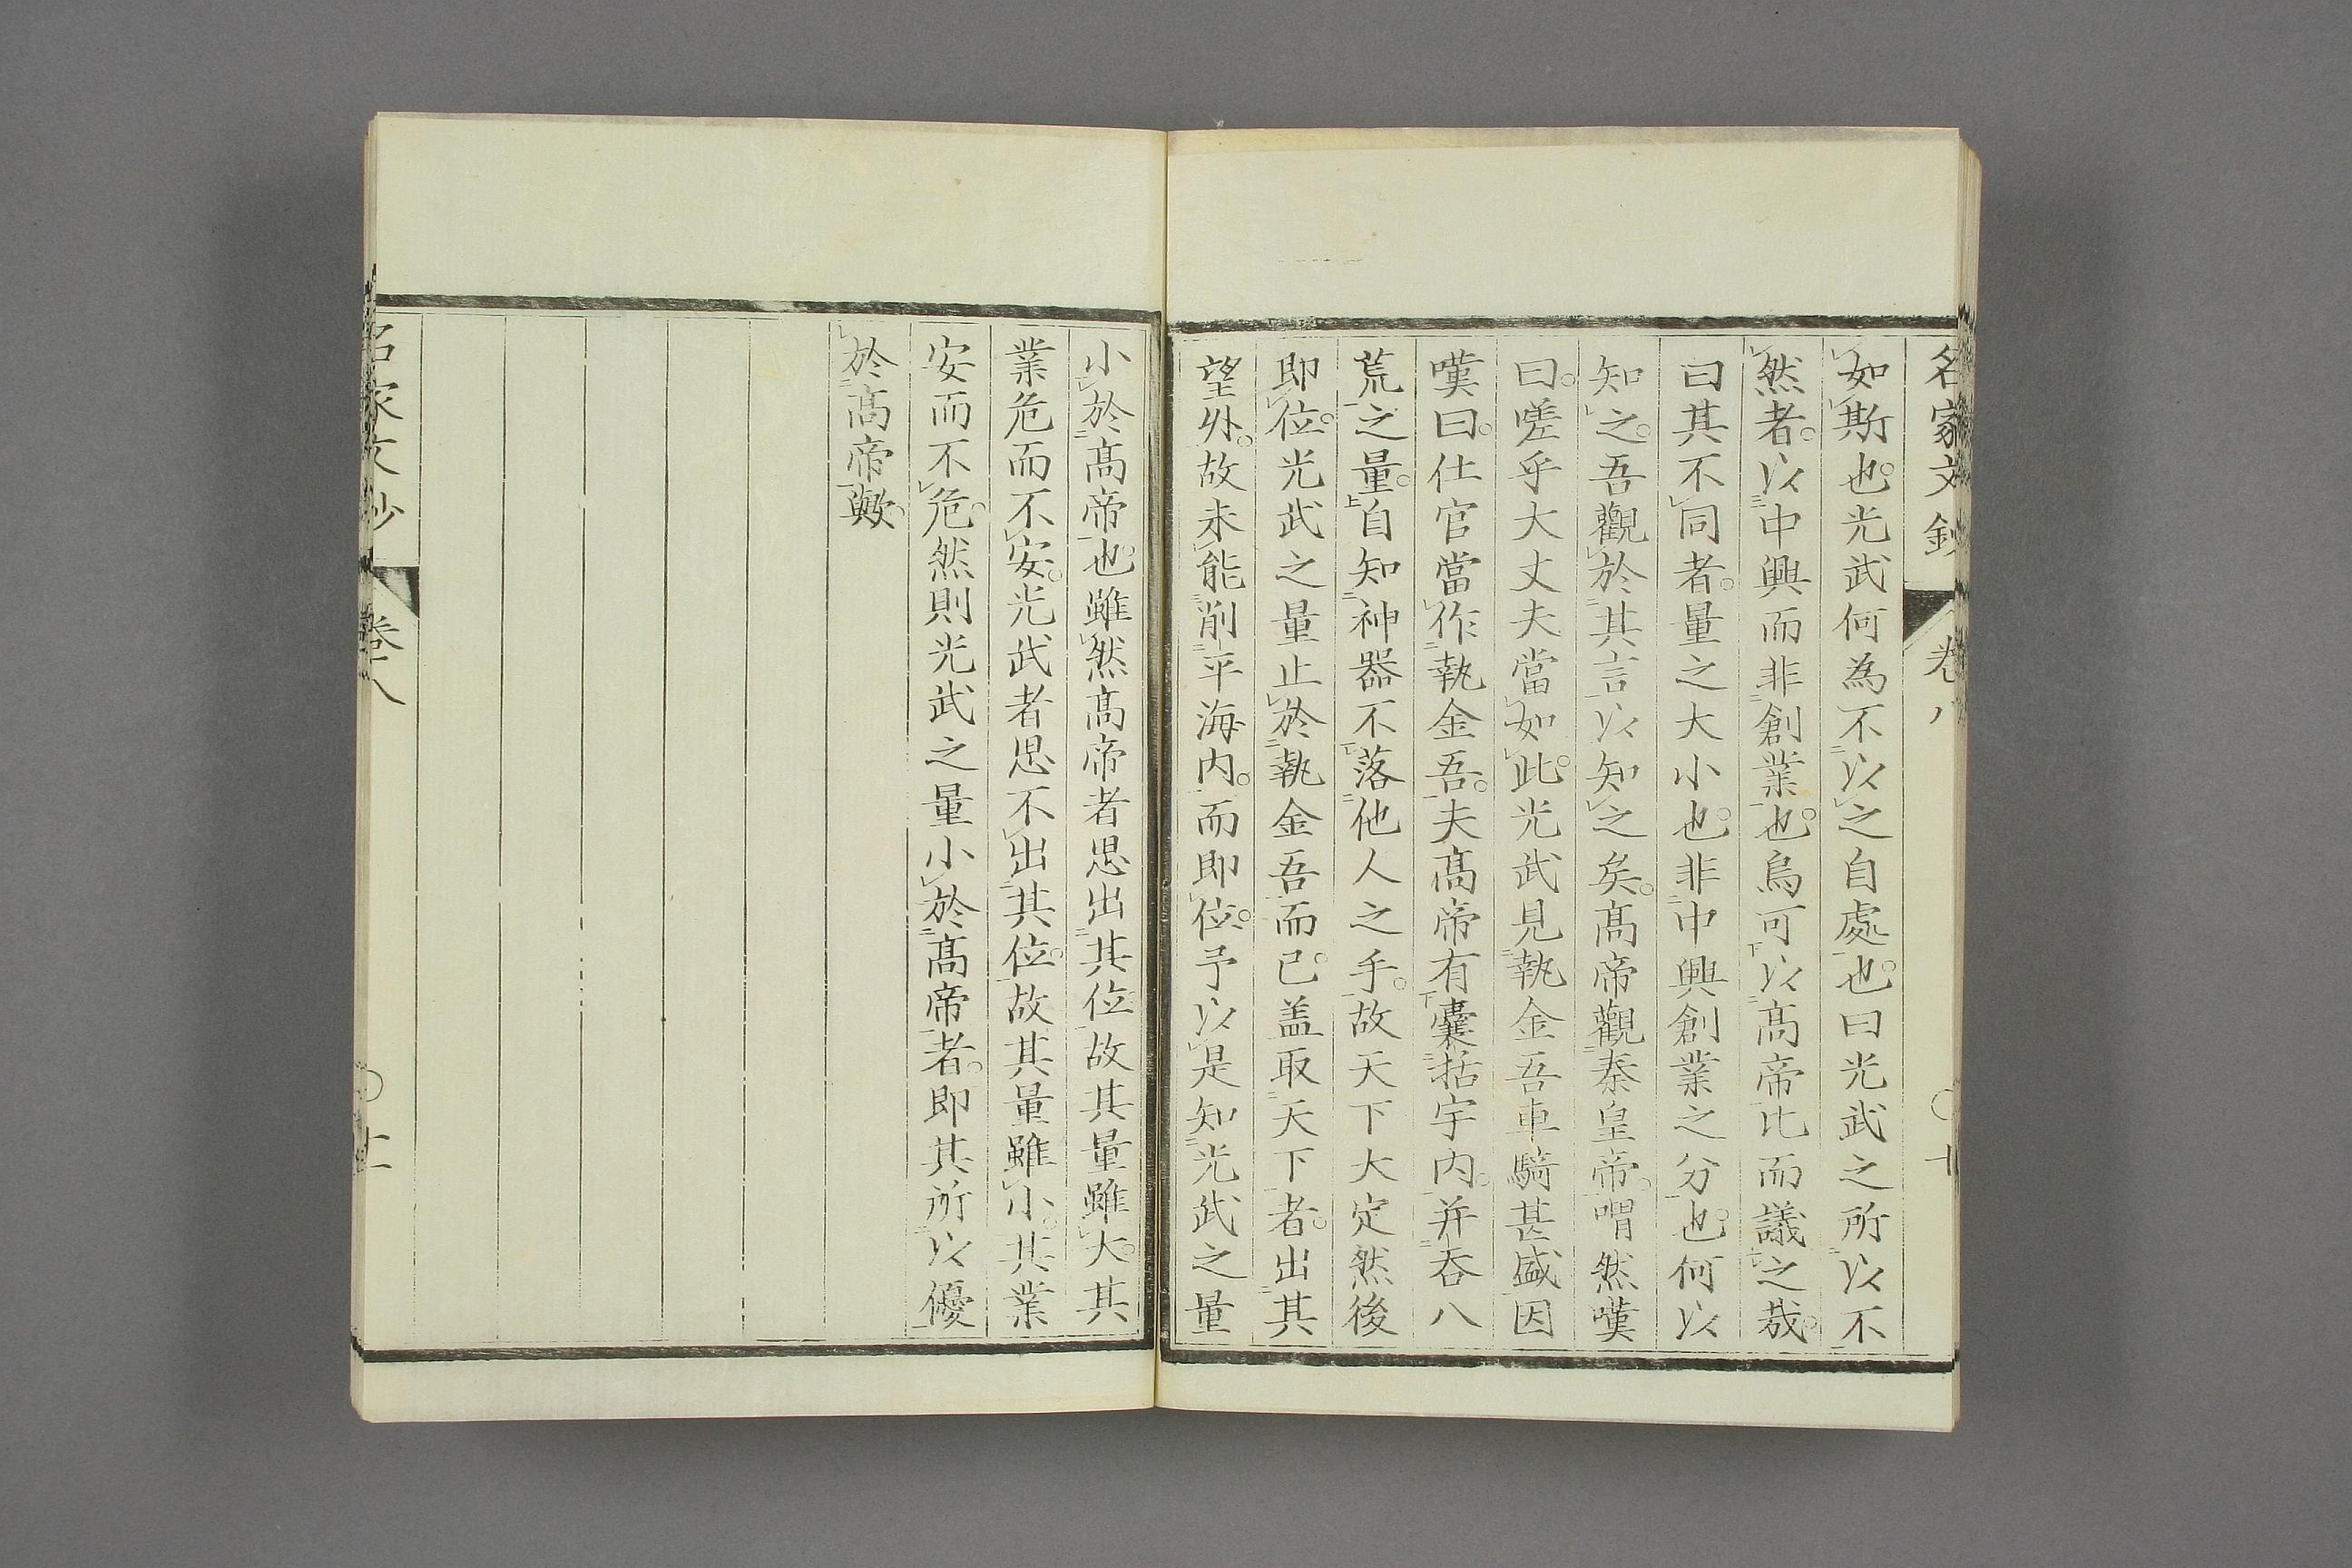 名家文鈔 卷八 〇 十
如斯也。光武何為不以之自處也。曰光武之所以不
然者。以中興而非創業也。烏可以高帝比而議之哉。
曰其不同者。量之大小也。非中興創業之分也。何以
知之。吾觀於其言以知之矣。高帝觀秦皇帝。喟然嘆
曰。嗟乎大丈夫當如此。光武見執金吾車騎甚盛因
嘆曰。仕官當作執金吾。夫高帝有囊括宇内。并呑八
荒之量。自知神器不落他人之手。故天下大定然後
即位。光武之量止於執金吾而已。盖取天下者。出其
望外。故未能削平海内。而即位。予以是知光武之量
小於高帝也。雖然高帝者思出其位故其量雖大。其
業危而不安。光武者思不出其位。故其量雖小。其業
安而不危。然則光武之量小於高帝者。即其所以優
於高帝歟。
名家文鈔 卷八 〇 十一